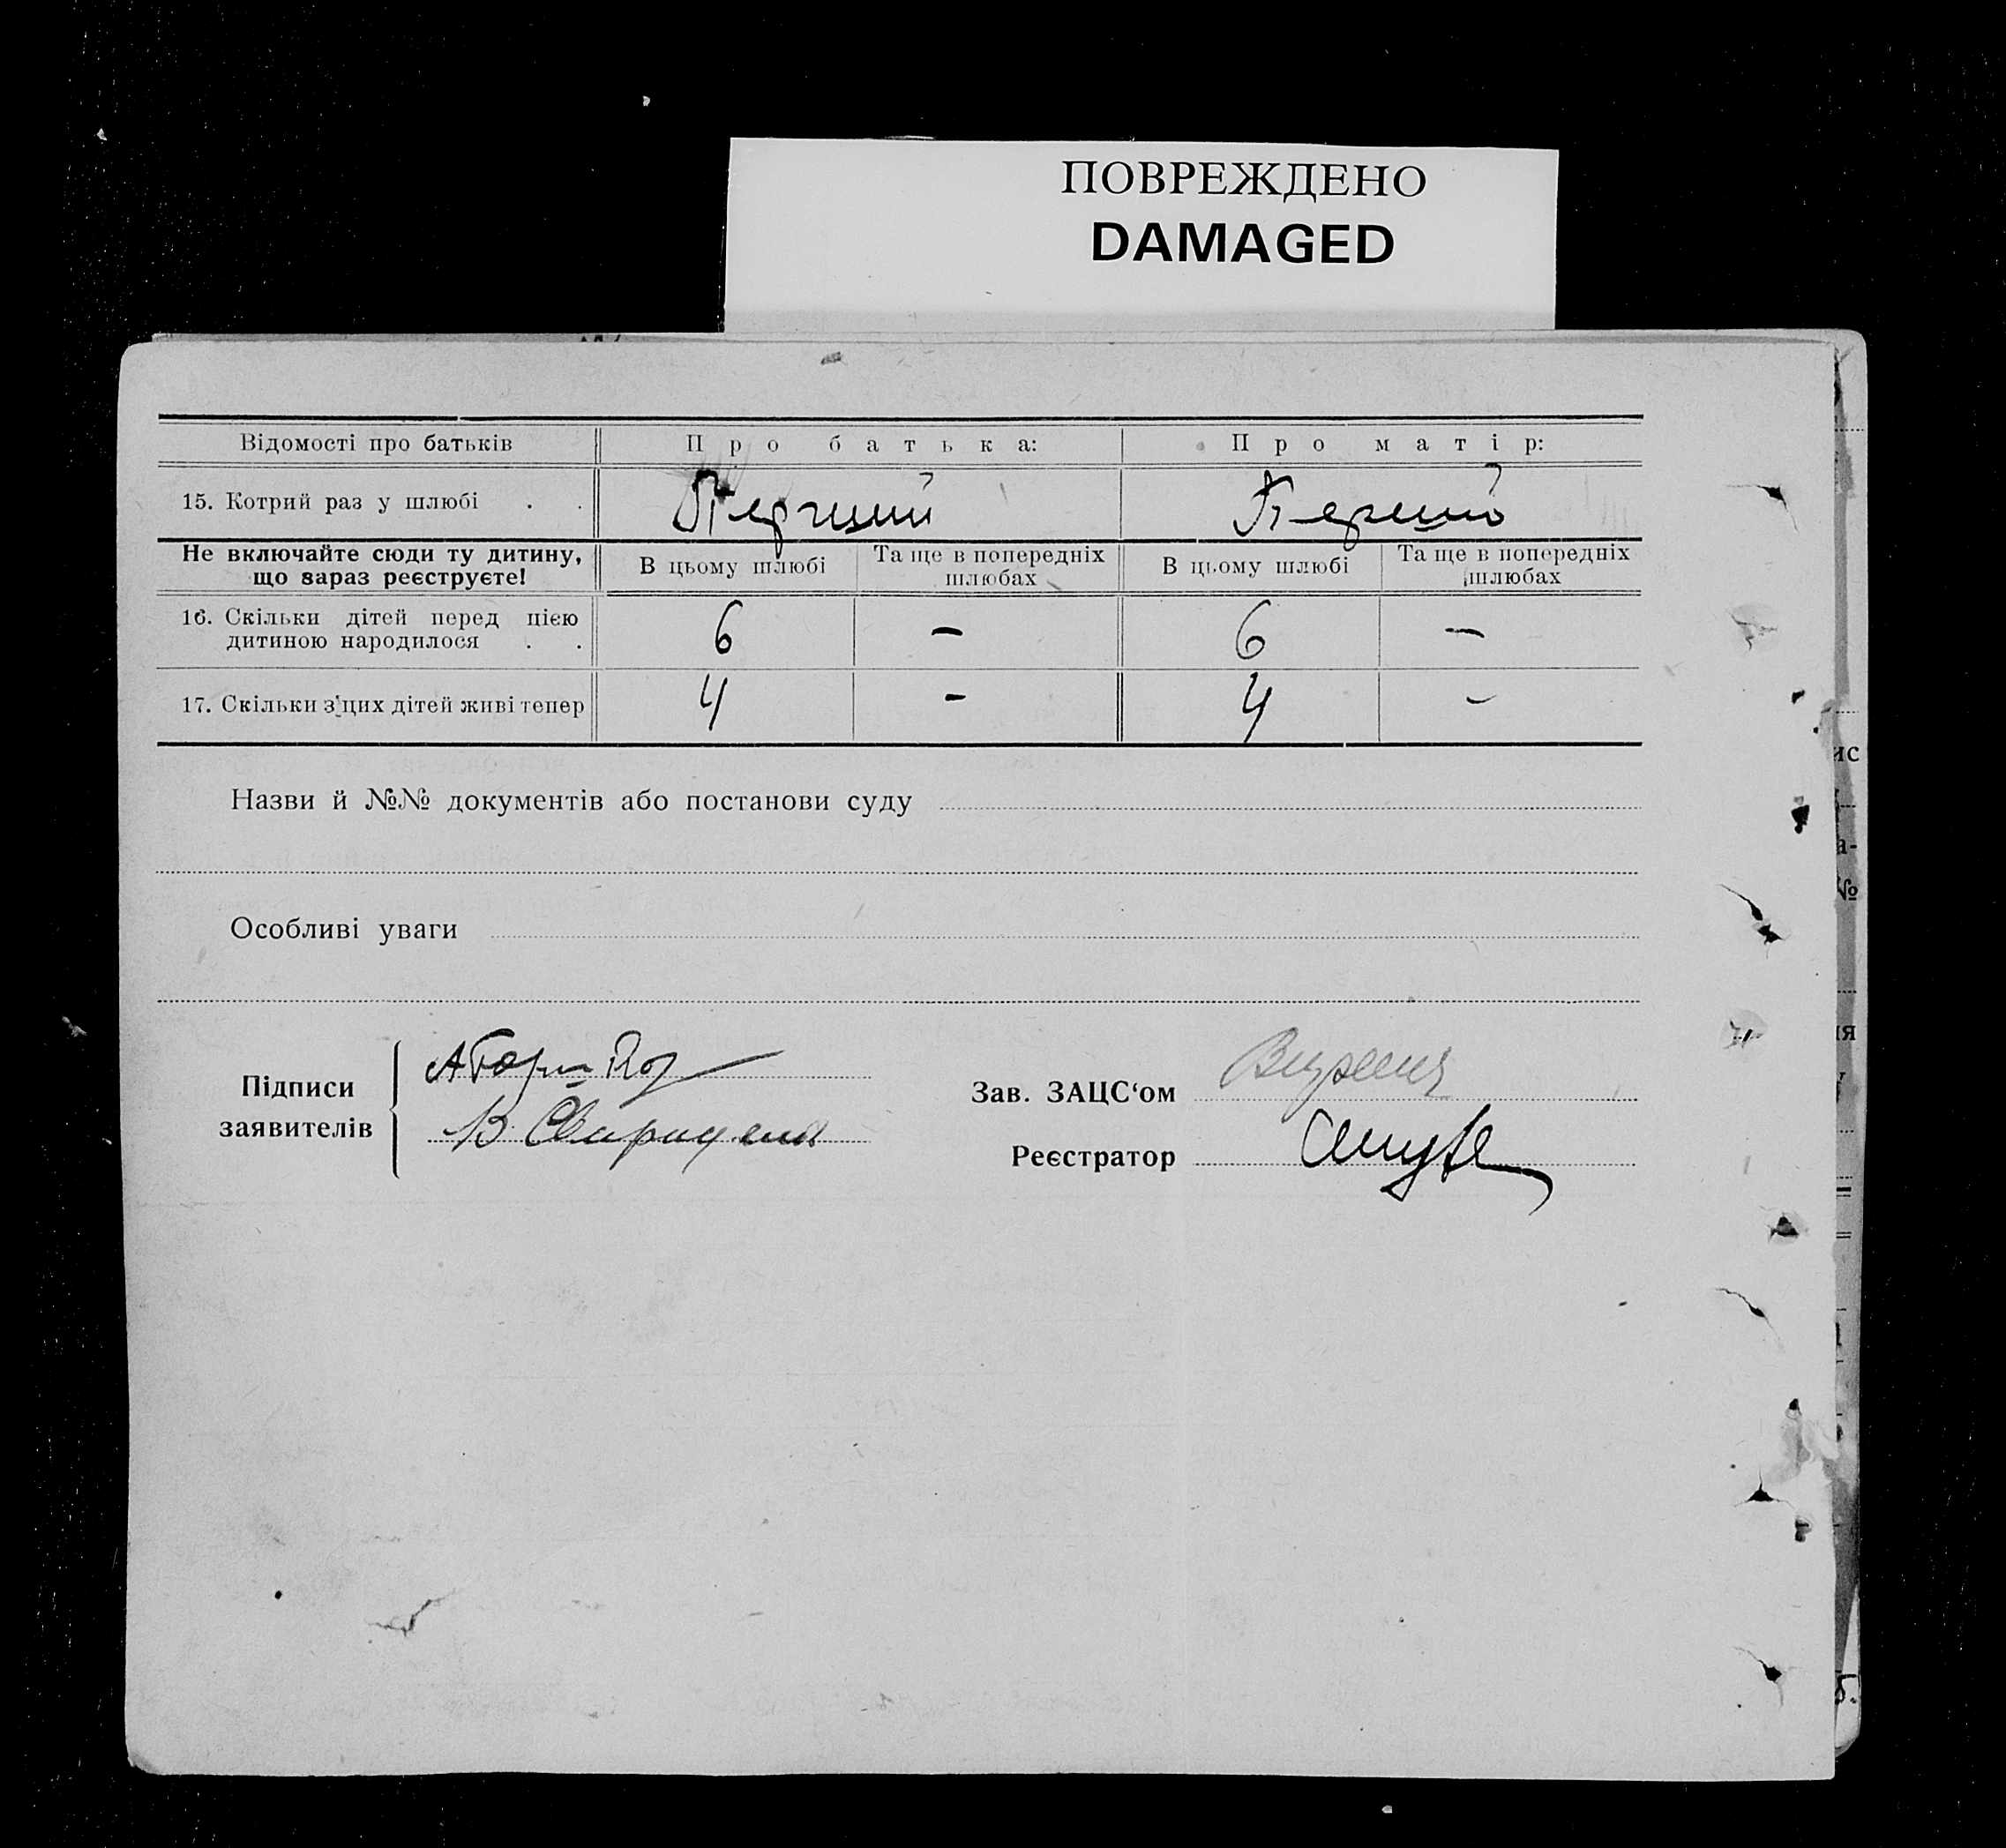 ПОВРЕЖДЕНО
DAMAGED
Відомості про батьків Про батька: Про матір:
15. Котрий раз у шлюбі . . Перший Перший
Не включайте сюди ту дитину, що зараз реєструєте! В цьому шлюбі Та ще в попередніх шлюбах В цьому шлюбі Та ще в попередніх шлюбах
16. Скільки дітей перед цією дитиною народилося . . 6 — 6 —
17. Скільки з цих дітей живі тепер 4 - 4 -
Назви й №№ документів або постанови суду
Особливі уваги
Підписи заявителів
Зав. ЗАЦС‘ом
Реєстратор